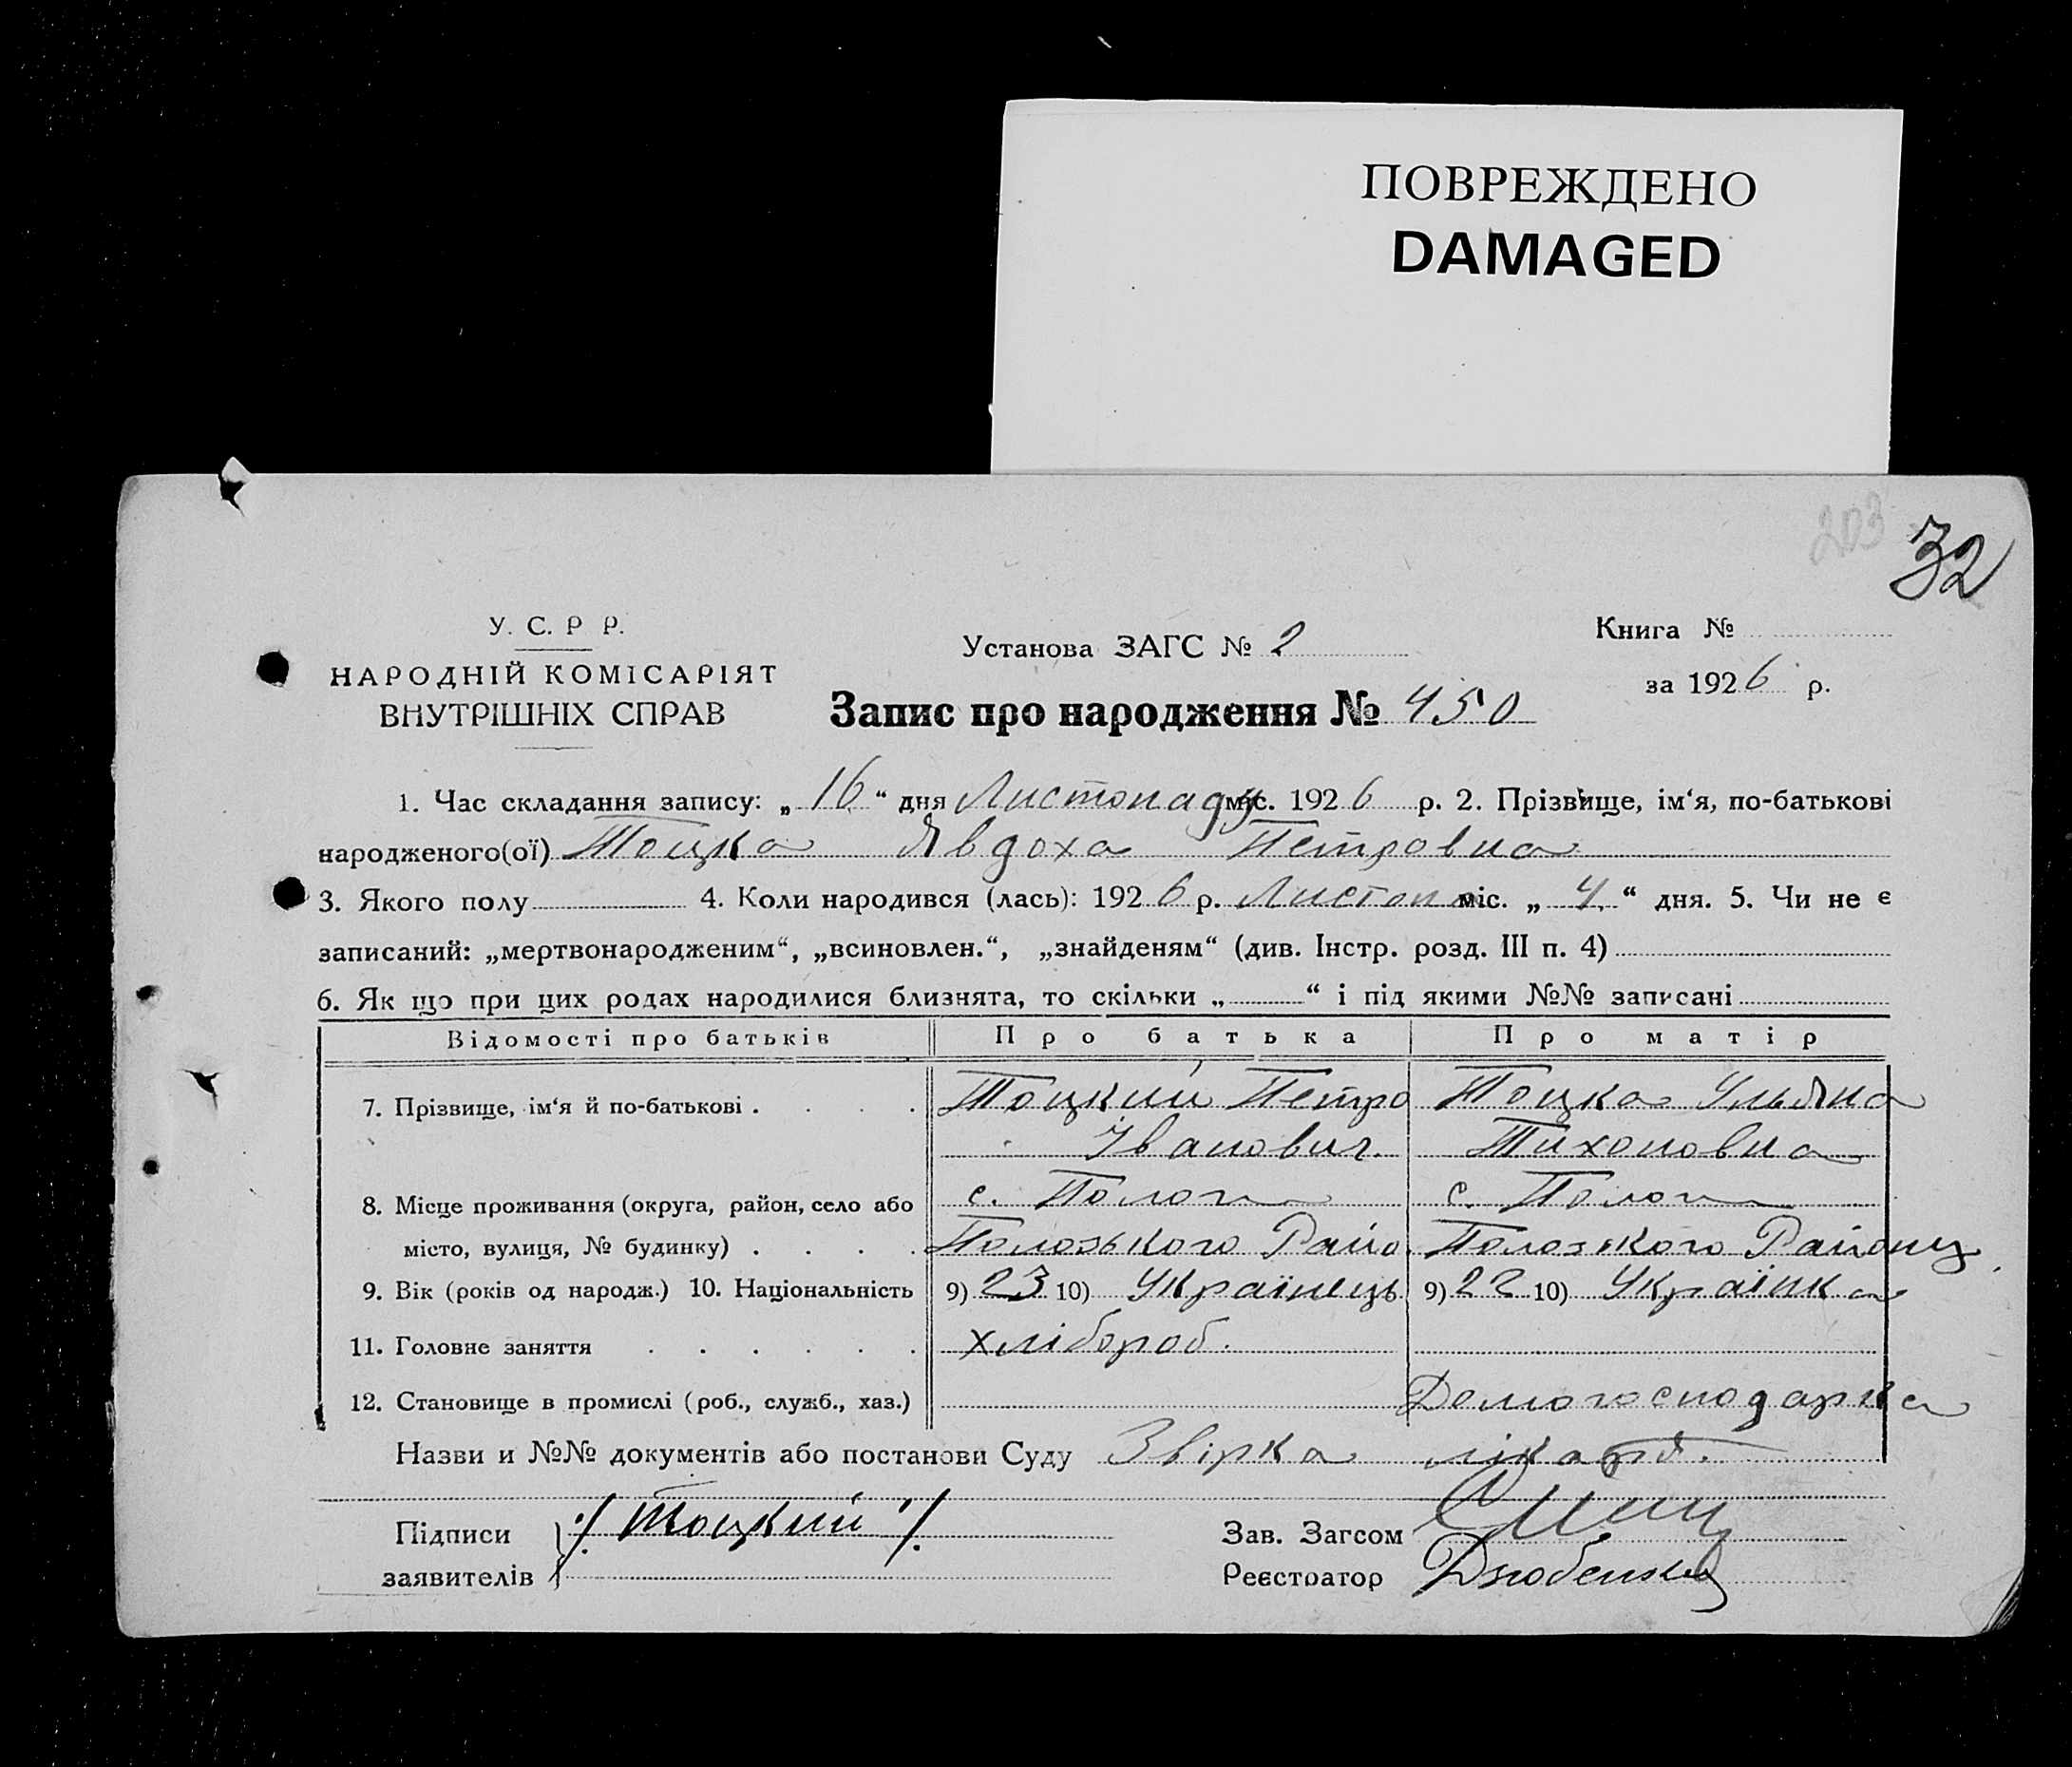 ПОВРЕЖДЕНО
DAMAGED
203
32
У. С. Р Р.
НАРОДНІЙ КОМІСАРІЯТ
ВНУТРІШНІХ СПРАВ
Установа ЗАГС № 2
Запис про народження № 450
Книга №
за 1926 р.
1. Час складання запису: „16“ дня Листопаду міс. 1926 р. 2. Прізвище, ім‘я, по-батькові
народженого(ої) Тоцка Явдоха Петровна
3. Якого полу 4. Коли народився (лась): 1926 р. Листопа міс. „4.“ дня. 5. Чи не є
записаний: „мертвонародженим“, „всиновлен.“, „знайденям“ (див. Інстр. розд. III п. 4)
6. Як що при цих родах народилися близнята, то скільки „ “ і під якими №№ записані
Відомості про батьків Про батька Про матір
7. Прізвище, ім‘я й по-батькові . . . . Тоцкий Петро Тоцка Ульяна
Іванович. Тихоновна
8. Місце проживання (округа, район, село або с. Пологи с. Пологи
місто, вулиця, № будинку) . . . . Пологського Райо. Пологського Району
9. Вік (років од народж.) 10. Національність 9) 23 10) Українець 9) 22 10) Українка
11. Головне заняття . . . . . . хлібороб.
12. Становище в промислі (роб., служб., хаз.) Домогосподарка
Назви и №№ документів або постанови Суду
Підписи ./ Тоцкий /. Зав. Загсом
заявителів Реєстратор